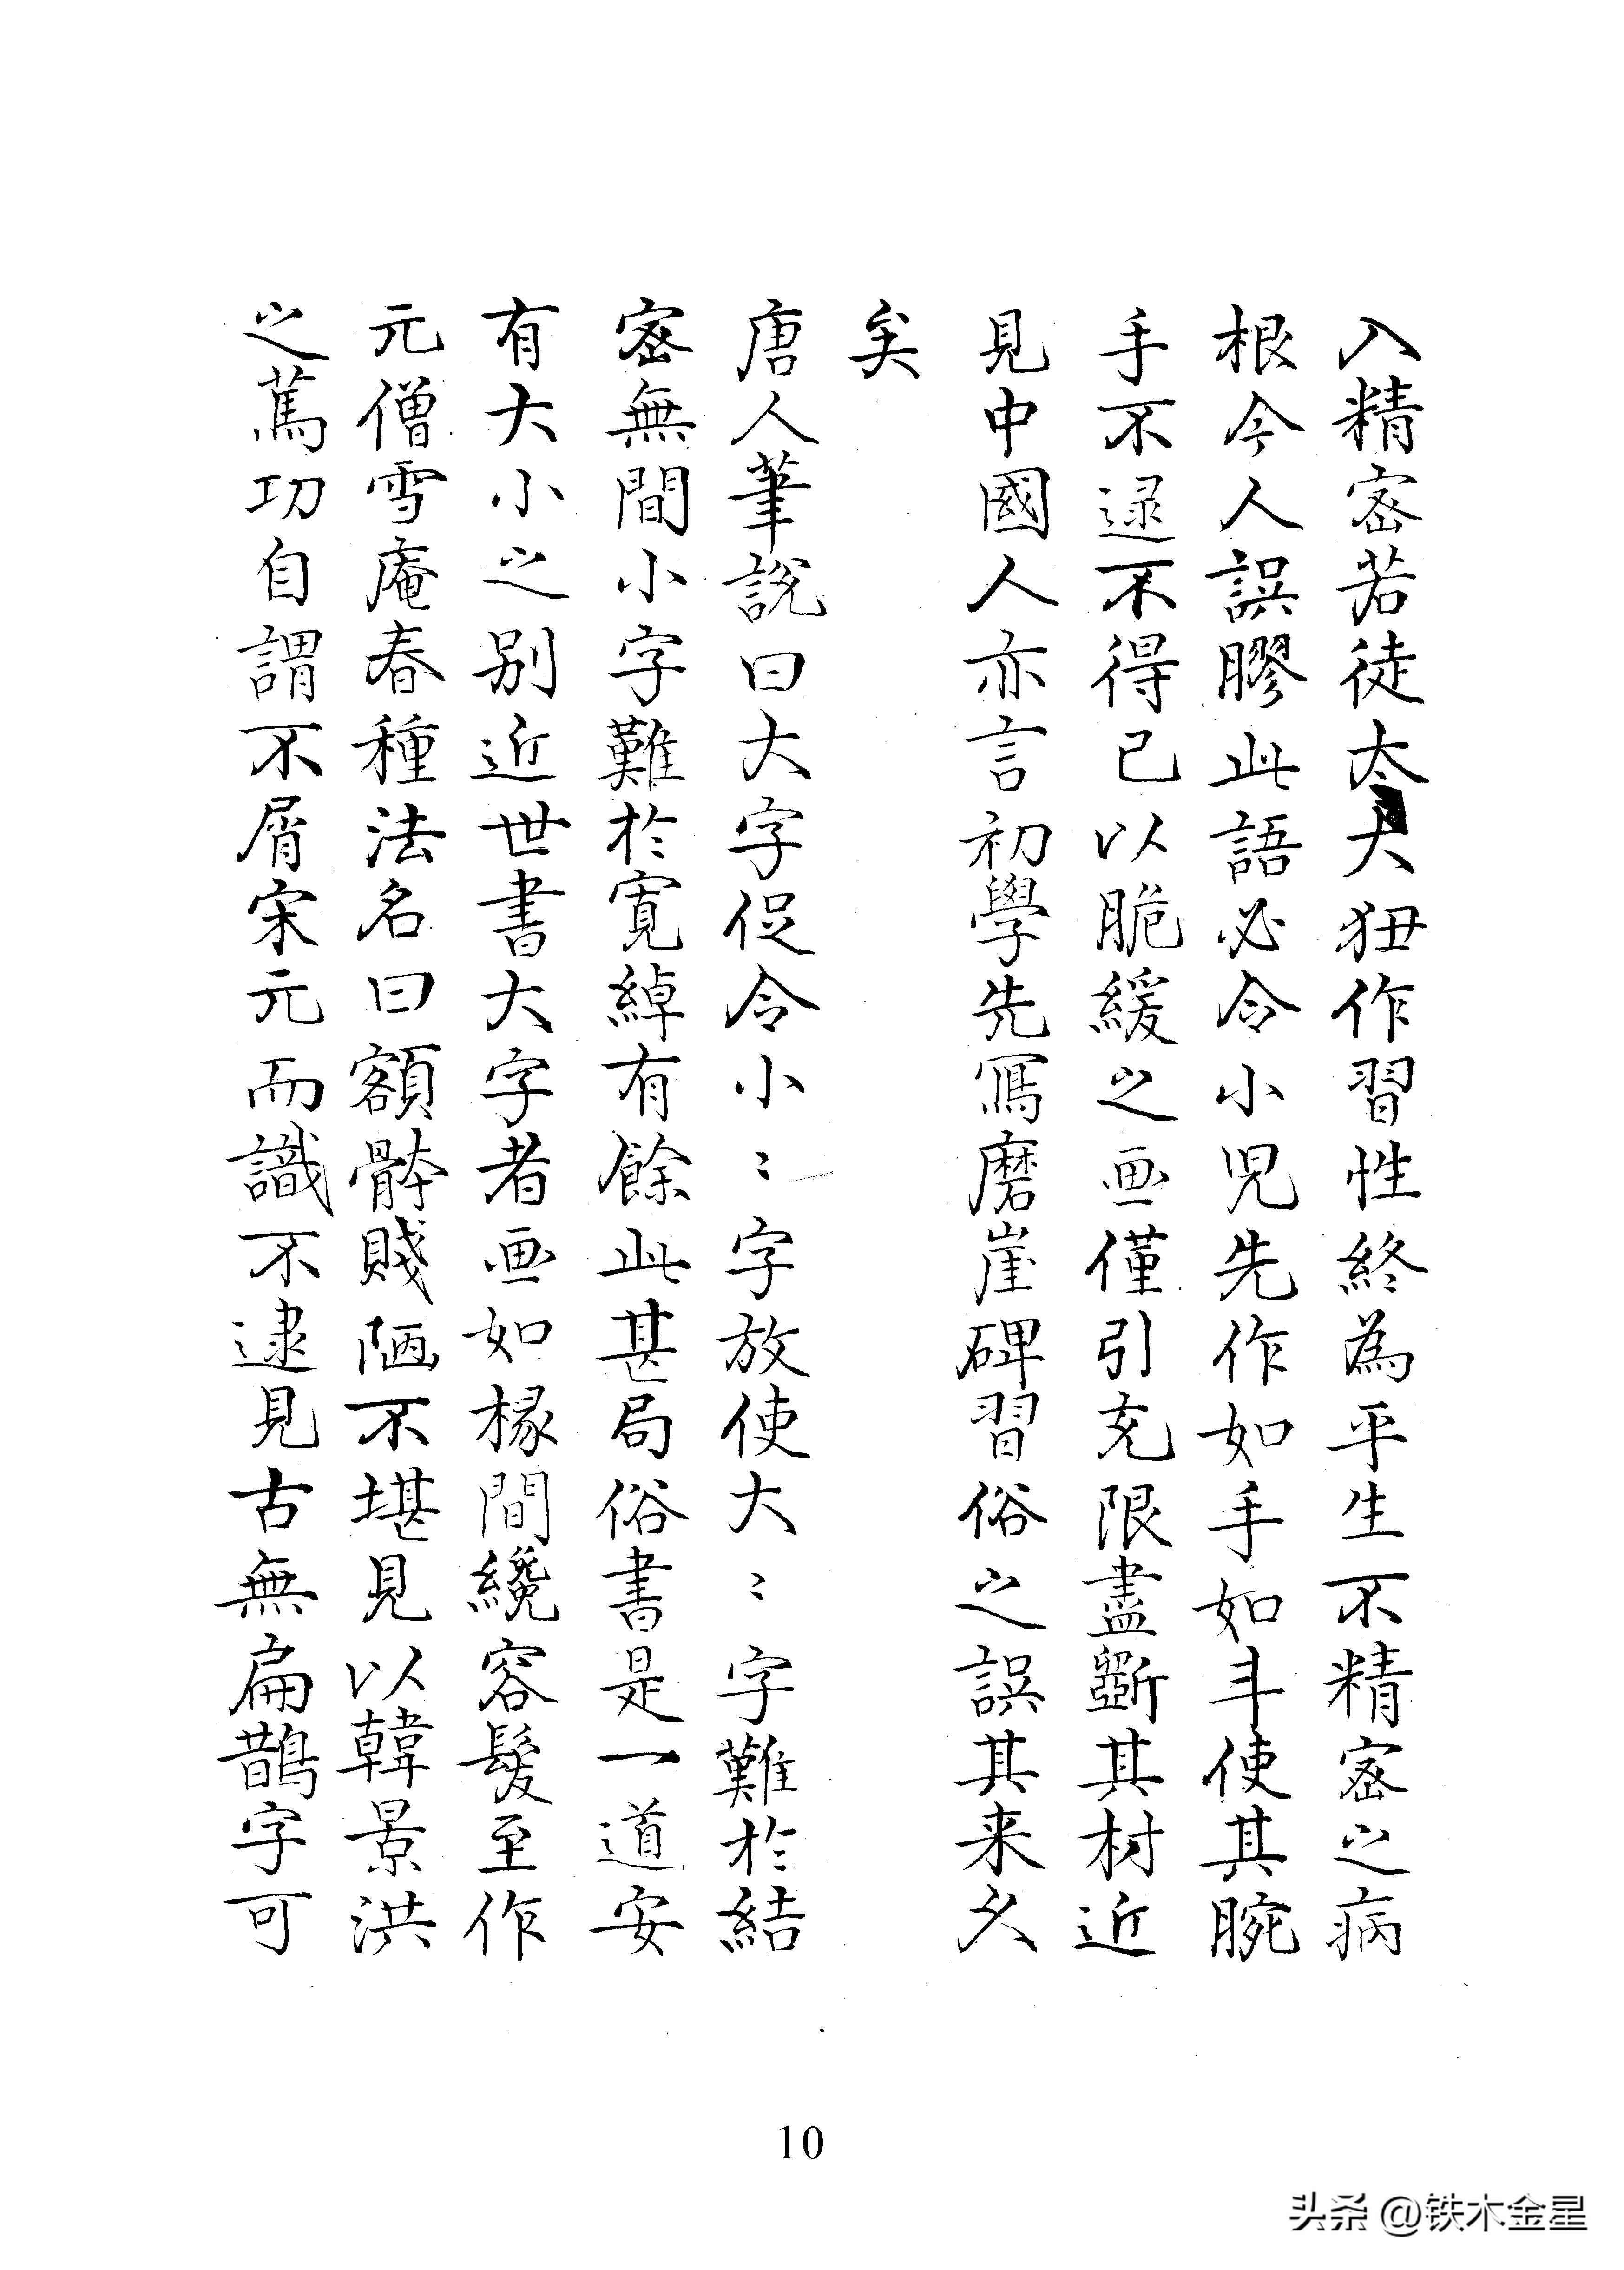 入精密若徒太大狃作習性終為平生不精密之病
根今人誤膠此語必令小児先作如手如斗使其腕
手不逮不得已以脆緩之画僅引充限盡斵其材近
見中國人亦言初學先冩磨崖碑習俗之誤其来久
矣
唐人筆說曰大字促令小〻字放使大〻字難於結
密無間小字難於寛綽有餘此甚局俗書是一道安
有大小之别近世書大字者画如椽間纔容髮至作
元僧雪庵春種法名曰額骵賤陋不堪見以韓景洪
之篤功自謂不屑宋元而識不逮見古無扁鵲字可
10
头条 @铁木金星